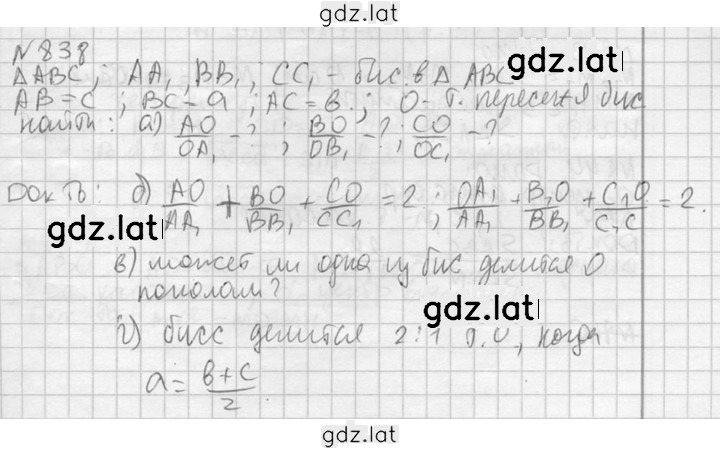 gdz.lat
N 838
gdz.lat
△ABC; AA₁, BB₁, CC₁ - бис в △ ABC
AB = C; BC - a; AC = в.; O - т. пересечя бис
найти: а) AO/OA₁ - ?; BO/OB₁ - ?; CO/OC₁ - ?
Док ть: б) AO/AA₁ + BO/BB₁ + CO/CC₁ = 2; OA₁/AA₁ + B₁O/BB₁ + C₁O/C₁C = 2.
gdz.lat
в) может ли одна из бис делится O
пополам?
gdz.lat
г) бисс делится 2:1 т.О, когда
a = в+c/2.
gdz.lat